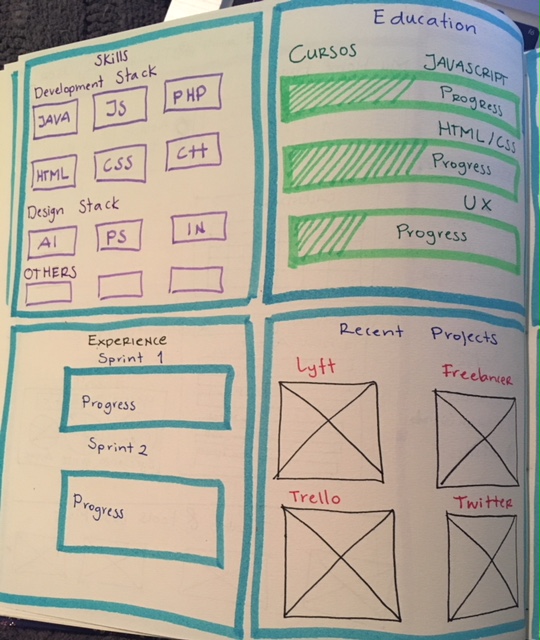 Skills
Development Stack
JAVA JS PHP
HTML CSS C++
Design Stack
AI PS IN
OTHERS
Education
CURSOS
JAVASCRIPT
Progress
HTML/CSS
Progress
UX
Progress
EXPERIENCE
Sprint 1
Progress
Sprint 2
Progress
Recent Projects
Lyft Freelancer
Trello Twitter